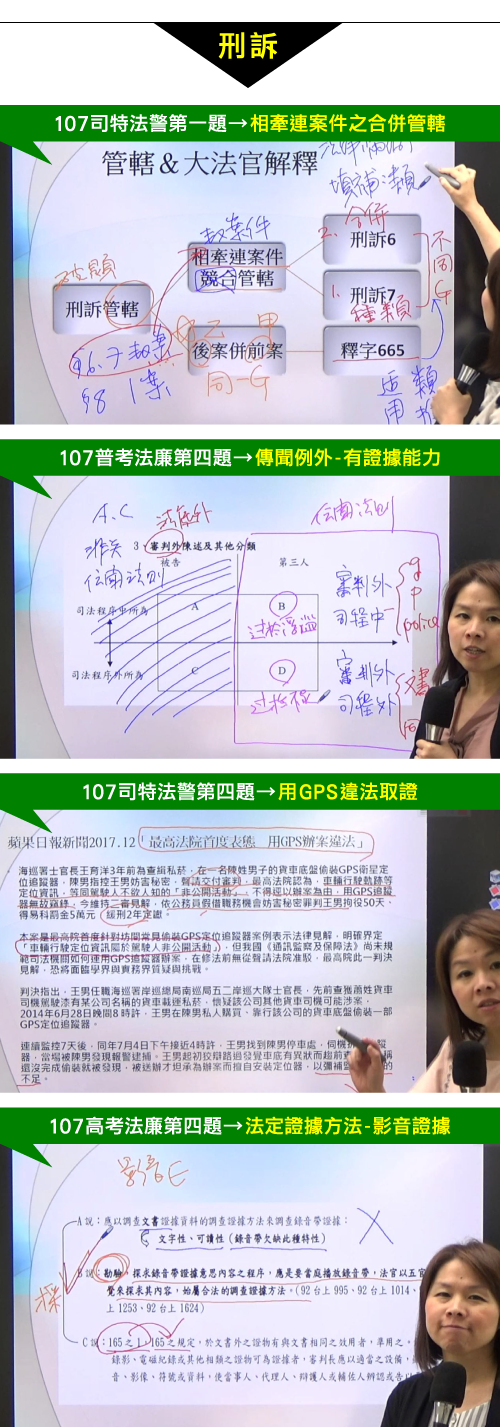 刑訴
107司特法警第一題→相牽連案件之合併管轄
管轄＆大法官解釋
填補漏
數案件
2.合併
相牽連案件
競合管轄
刑訴6
不同G
刑訴管轄
1.
刑訴7
種類
§6.7 數案
§8 1案
乙 甲
後案併前案
同一G
釋字665
適用
107普考法廉第四題→傳聞例外-有證據能力
A.C
法庭外
傳聞法則
3、審判外陳述及其他分類
被告
第三人
傳聞法則
審判外
司法程序中所為
A
B
過於浮濫
司程中
police
司法程序外所為
C
D
審判外
司程外
107司特法警第四題→用GPS違法取證
蘋果日報新聞2017.12「最高法院首度表態　用GPS辦案違法」
海巡署士官長王育洋3年前為查緝私菸，在一名陳姓男子的貨車底盤偷裝GPS衛星定
位追蹤器，陳男指控王男妨害秘密，聲請交付審判，最高法院認為，車輛行駛軌跡等
定位資訊，等同駕駛人不欲人知的「非公開活動」，不得逕以辦案為由，用GPS追蹤
器無故竊錄，今維持二審見解，依公務員假借職務機會妨害秘密罪判王男拘役50天、
得易科罰金5萬元，緩刑2年定讞。
本案是最高院首度針對坊間常見偷裝GPS定位追蹤器案例表示法律見解，明確界定
「車輛行駛定位資訊屬於駕駛人非公開活動」，但我國《通訊監察及保障法》尚未規
範司法機關如何運用GPS追蹤器辦案，在修法前無從聲請法院准駁，最高院此一判決
見解，恐將面臨學界與實務界質疑與挑戰。
判決指出，王男任職海巡署岸巡總局南巡局五二岸巡大隊士官長，先前查獲蕭姓貨車
司機駕駛漆有某公司名稱的貨車載運私菸，懷疑該公司其他貨車司機可能涉案，
2014年6月28日晚間8時許，王男在陳男私人購買、靠行該公司的貨車底盤偷裝一部
GPS定位追蹤器。
連續監控7天後，同年7月4日下午接近4時許，王男找到陳男停車處，伺機拆
器，當場被陳男發現報警逮捕。王男起初狡辯路過發覺車底有異狀而趨前查
還沒完成偷裝就被發現，被送辦才坦承為辦案而擅自安裝定位器，以彌補監
不足。
107高考法廉第四題→法定證據方法-影音證據
影音E
A說：應以調查文書證據資料的調查證據方法來調查錄音帶證據：
文字性、可讀性（錄音帶欠缺此種特性）
B說：勘驗，探求錄音帶證據意思內容之程序，應是要當庭播放錄音帶，法官以五官
覺來探求其內容，始屬合法的調查證據方法。（92台上995、92台上1014、
上1253、92台上1624）
採
C說：165之1，165之規定，於文書外之證物有與文書相同之效用者，準用之。
錄影、電磁紀錄或其他相類之證物可為證據者，審判長應以適當之設備，
音、影像、符號或資料，使當事人、代理人、辯護人或輔佐人辨認或告以